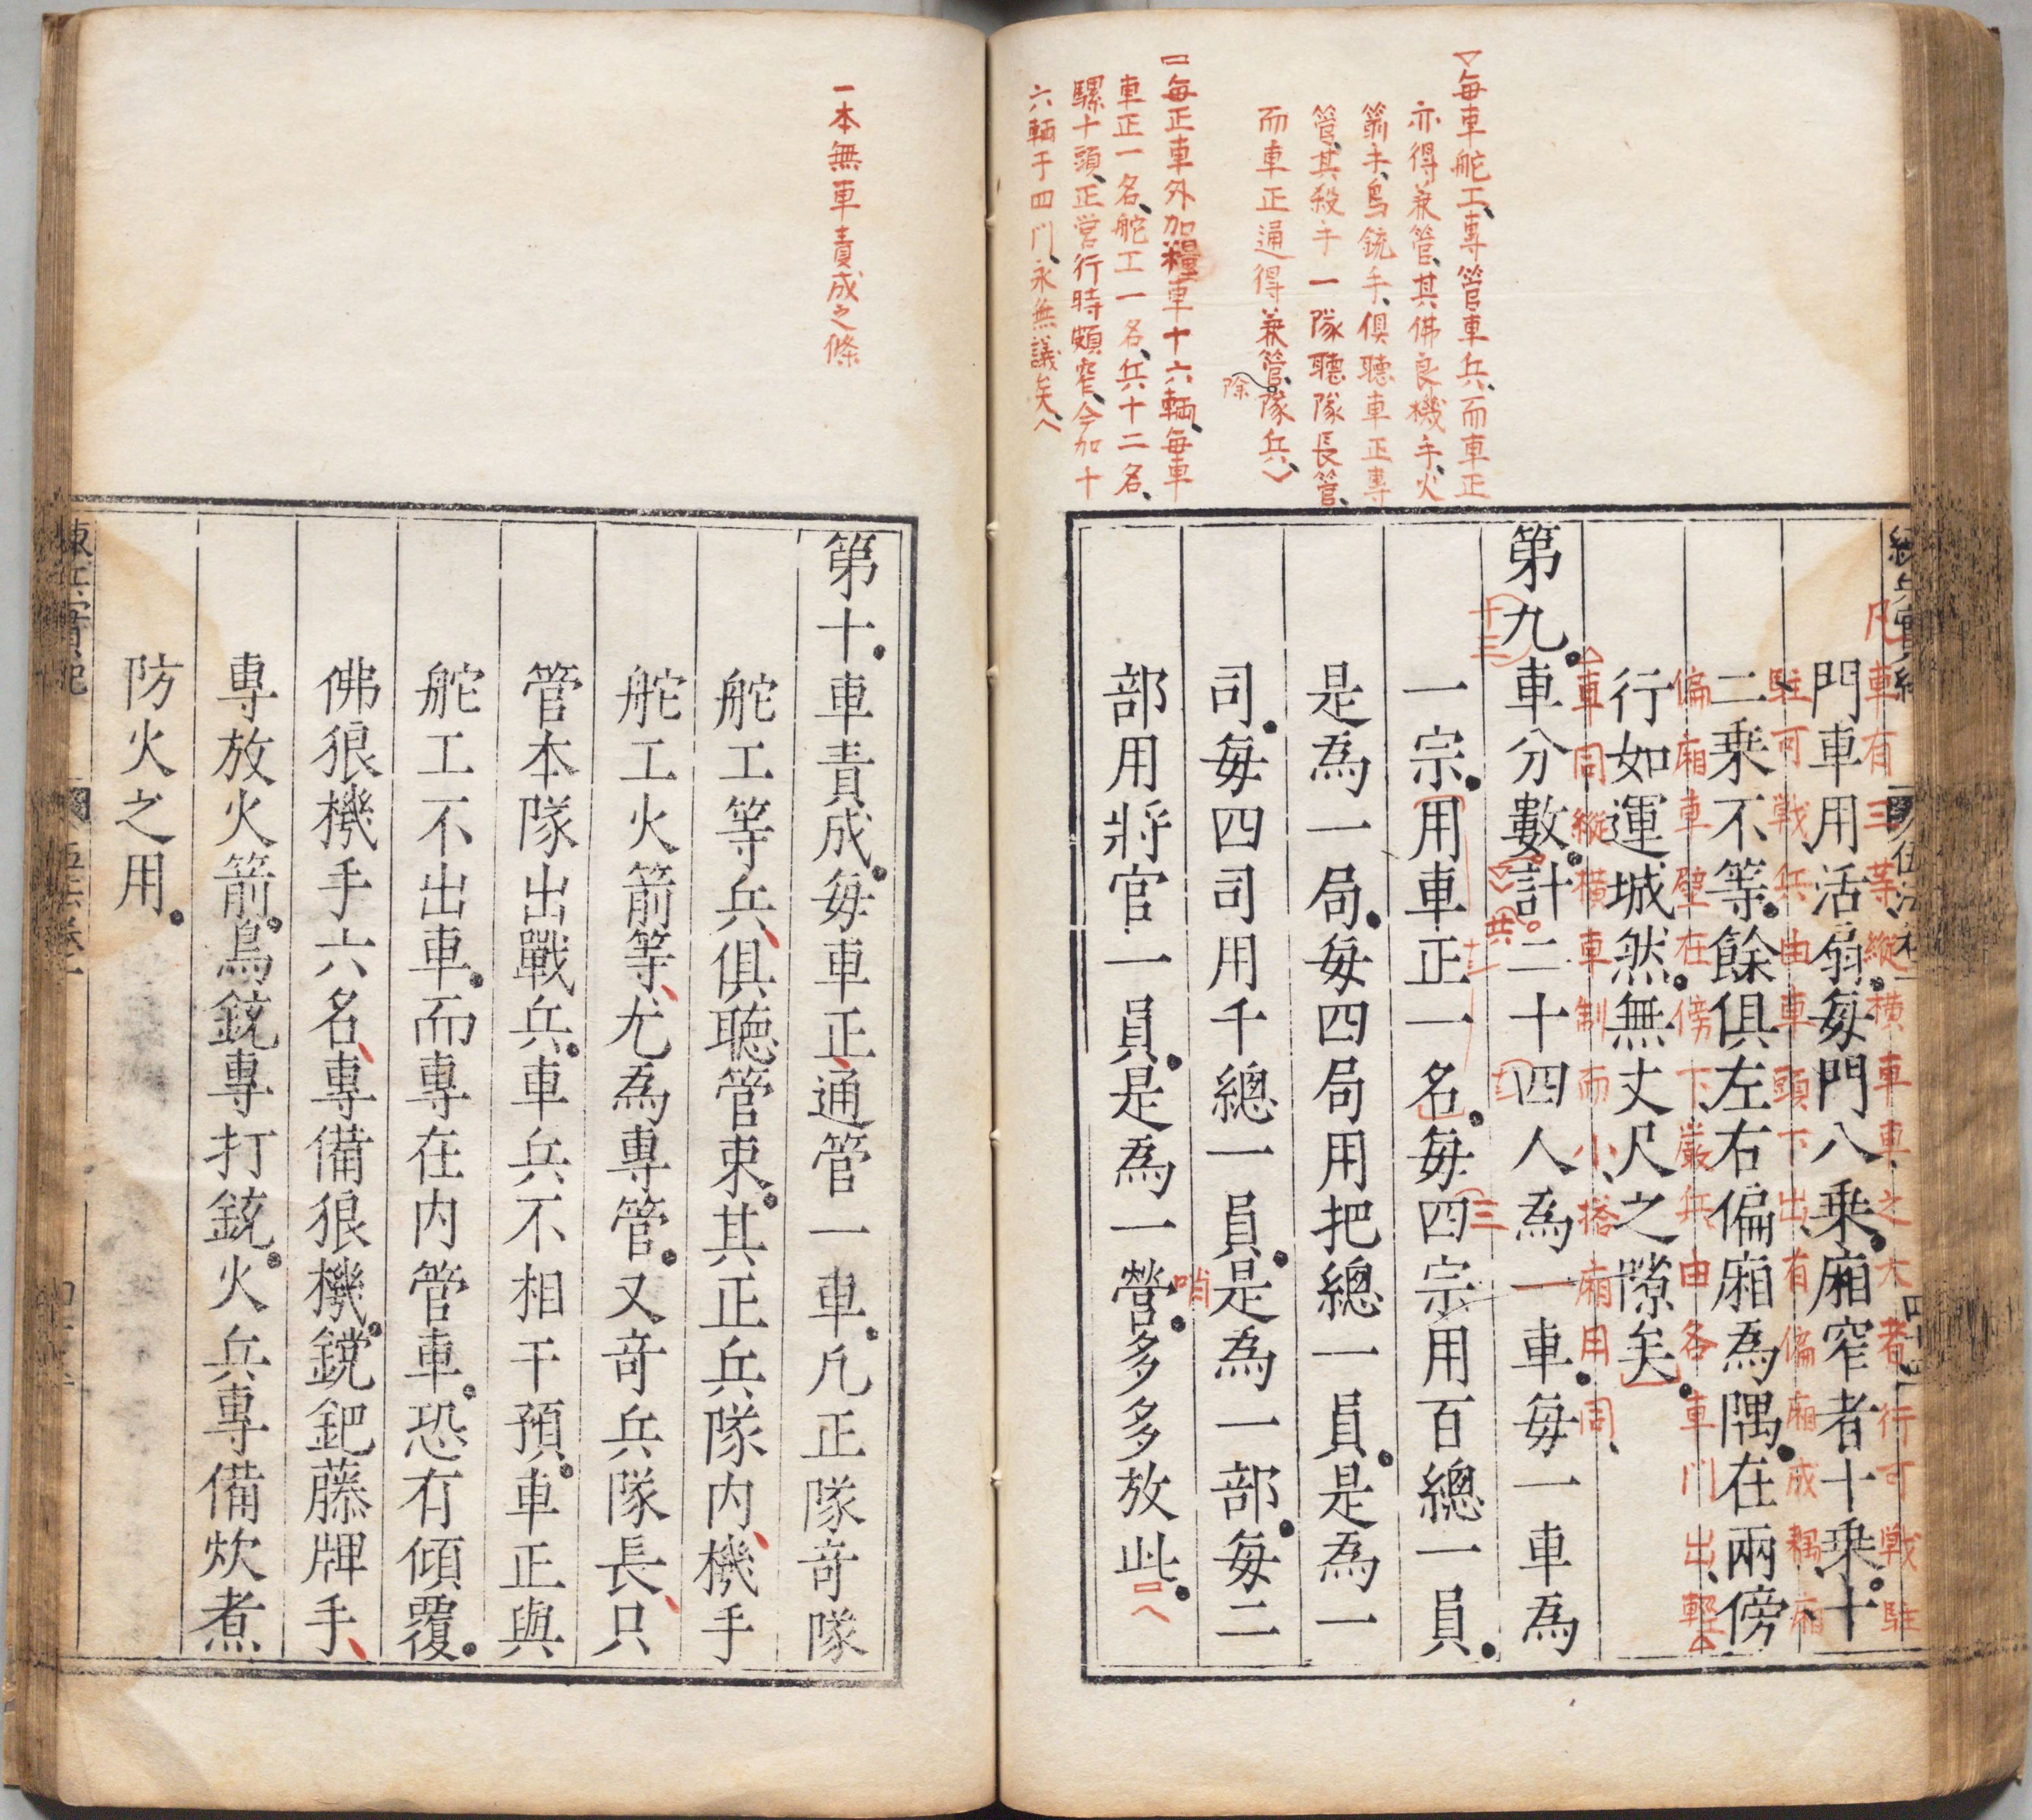 ▽每車舵工、專管車兵、而車正
亦得兼管、其佛良機手、火
箭手、鳥銃手、俱聽車正專
管、其殺手一隊聽隊長管、
而車正通得兼管隊兵、
除
每正車外加糧車十六輛、每車
車正一名、舵工一名、兵十二名、
騾十頭、正営行時頗窄、今加十
六輛于四門、永無議矣、
凡車有三等、縱橫車車之大者行可戦駐
門車用活扇。每門八乗。廂窄者十乗。十
駐可戦兵由車頭下出、有偏廂成耦廂
二乗不等。餘俱左右偏廂為隅。在兩傍
偏廂車壁在傍下嚴兵由各車門出、輕
行如運城然。無丈尺之隙矣。
車同縱橫車制而小、搭廂用同、
第九。車分數。計二十四人為一車。每一車為
十三
共
一宗。用車正一名。每四宗用百總一員。
三
是為一局。每四局用把總一員。是為一
司。每四司用千總一員。是為一部。每二
哨
部用將官一員。是為一營。多多放此。
一本無車責成之條
第十。車責成。每車正、通管一車。凢正隊竒隊
舵工等兵、俱聴管束。其正兵隊内、機手
舵工火箭等、尤為專管。又竒兵隊長、只
管本隊出戰兵。車兵不相干預。車正與
舵工不出車。而專在内管車。恐有傾覆。
佛狼機手六名、專備狼機。钂鈀藤牌手、
專放火箭。鳥銃專打銃。火兵專備炊煮
防火之用。